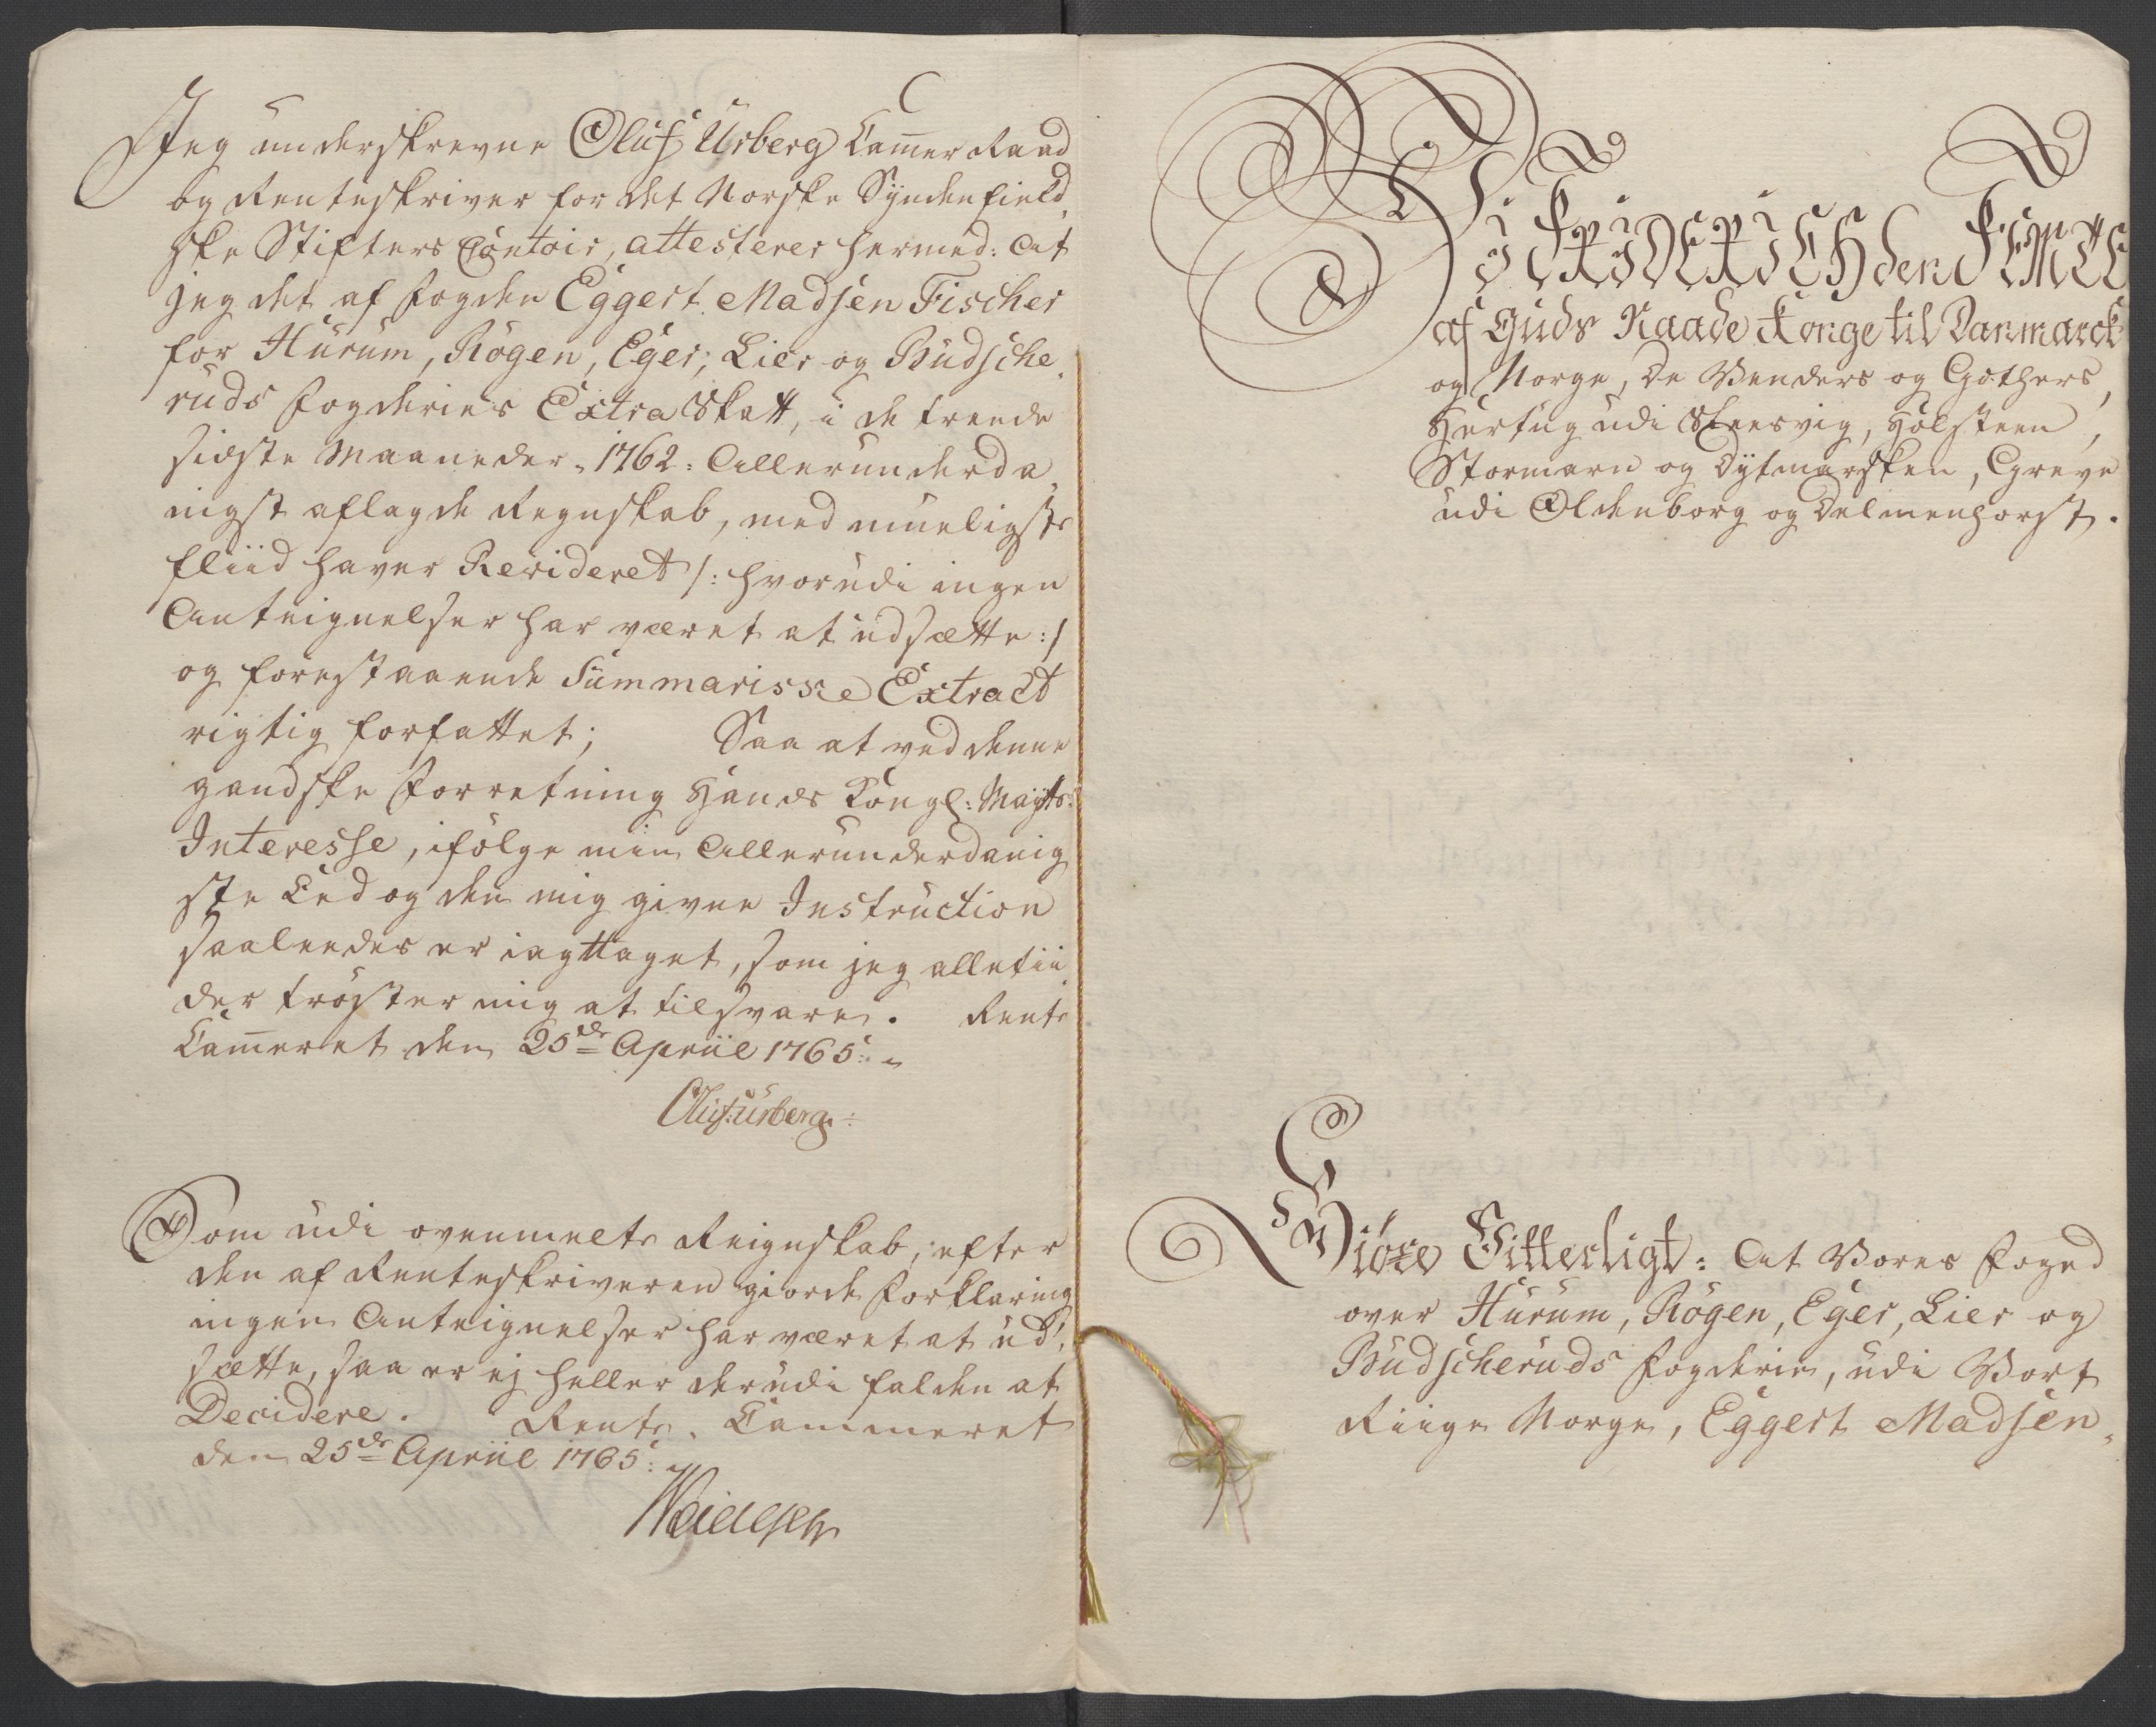 Jeg underskrevne Oluf Urberg Cam̅er Raad
og Renteskriver for det Norske Syndenfield,
ske Stifters Contoir, attesterer hermed: At
jeg det af Fogden Eggert Madsen Fischer
for Hurum, Rögen, Eger, Lier og Budsche,
ruds Fogderies Extra Skatt, i de trende
sidste Maaneder 1762: Allerunderda,
nigst aflagde Regnskab, med mueligste
fliid haver Revideret /: hvorudi ingen
Antegnelser har været at udsætte :/
og forestaaende Summariske Extract
rigtig forfattet; Saa at ved denne
gandske Forretning Hands Kongl: Mayts:
Interesse, ifölge min Allerunderdanig
ste Eed og den mig givne Instruction
saaleedes er iagttaget, som jeg alletii
der tröster mig at tilsvare. Rente
Cam̅eret den 25de Apriil 1765:
Oluf: Urberg:
Som udi ovenmelte Reignskab, efter
den af Renteskriveren giorde Forklaring
ingen Anteignelser har været at ud,
sætte, saa er ej heller derudi falden at
Decidere. Rente, Cammeret
den 25de Apriil 1765:
Vi FRIDERICH den FEMTE
af Guds Naade Konge til Danmarck
og Norge, De Venders og Gothers,
Hertug udi Slesvig, Holsteen,
Stormarn og Dytmarsken, Greve
udi Oldenborg og Delmenhorst.
Giöre Vitterligt: At Vores Foged
over Hurum, Rögen, Eger, Lier og
Budscheruds Fogderie, udi Vort
Riige Norge, Eggert Madsen,